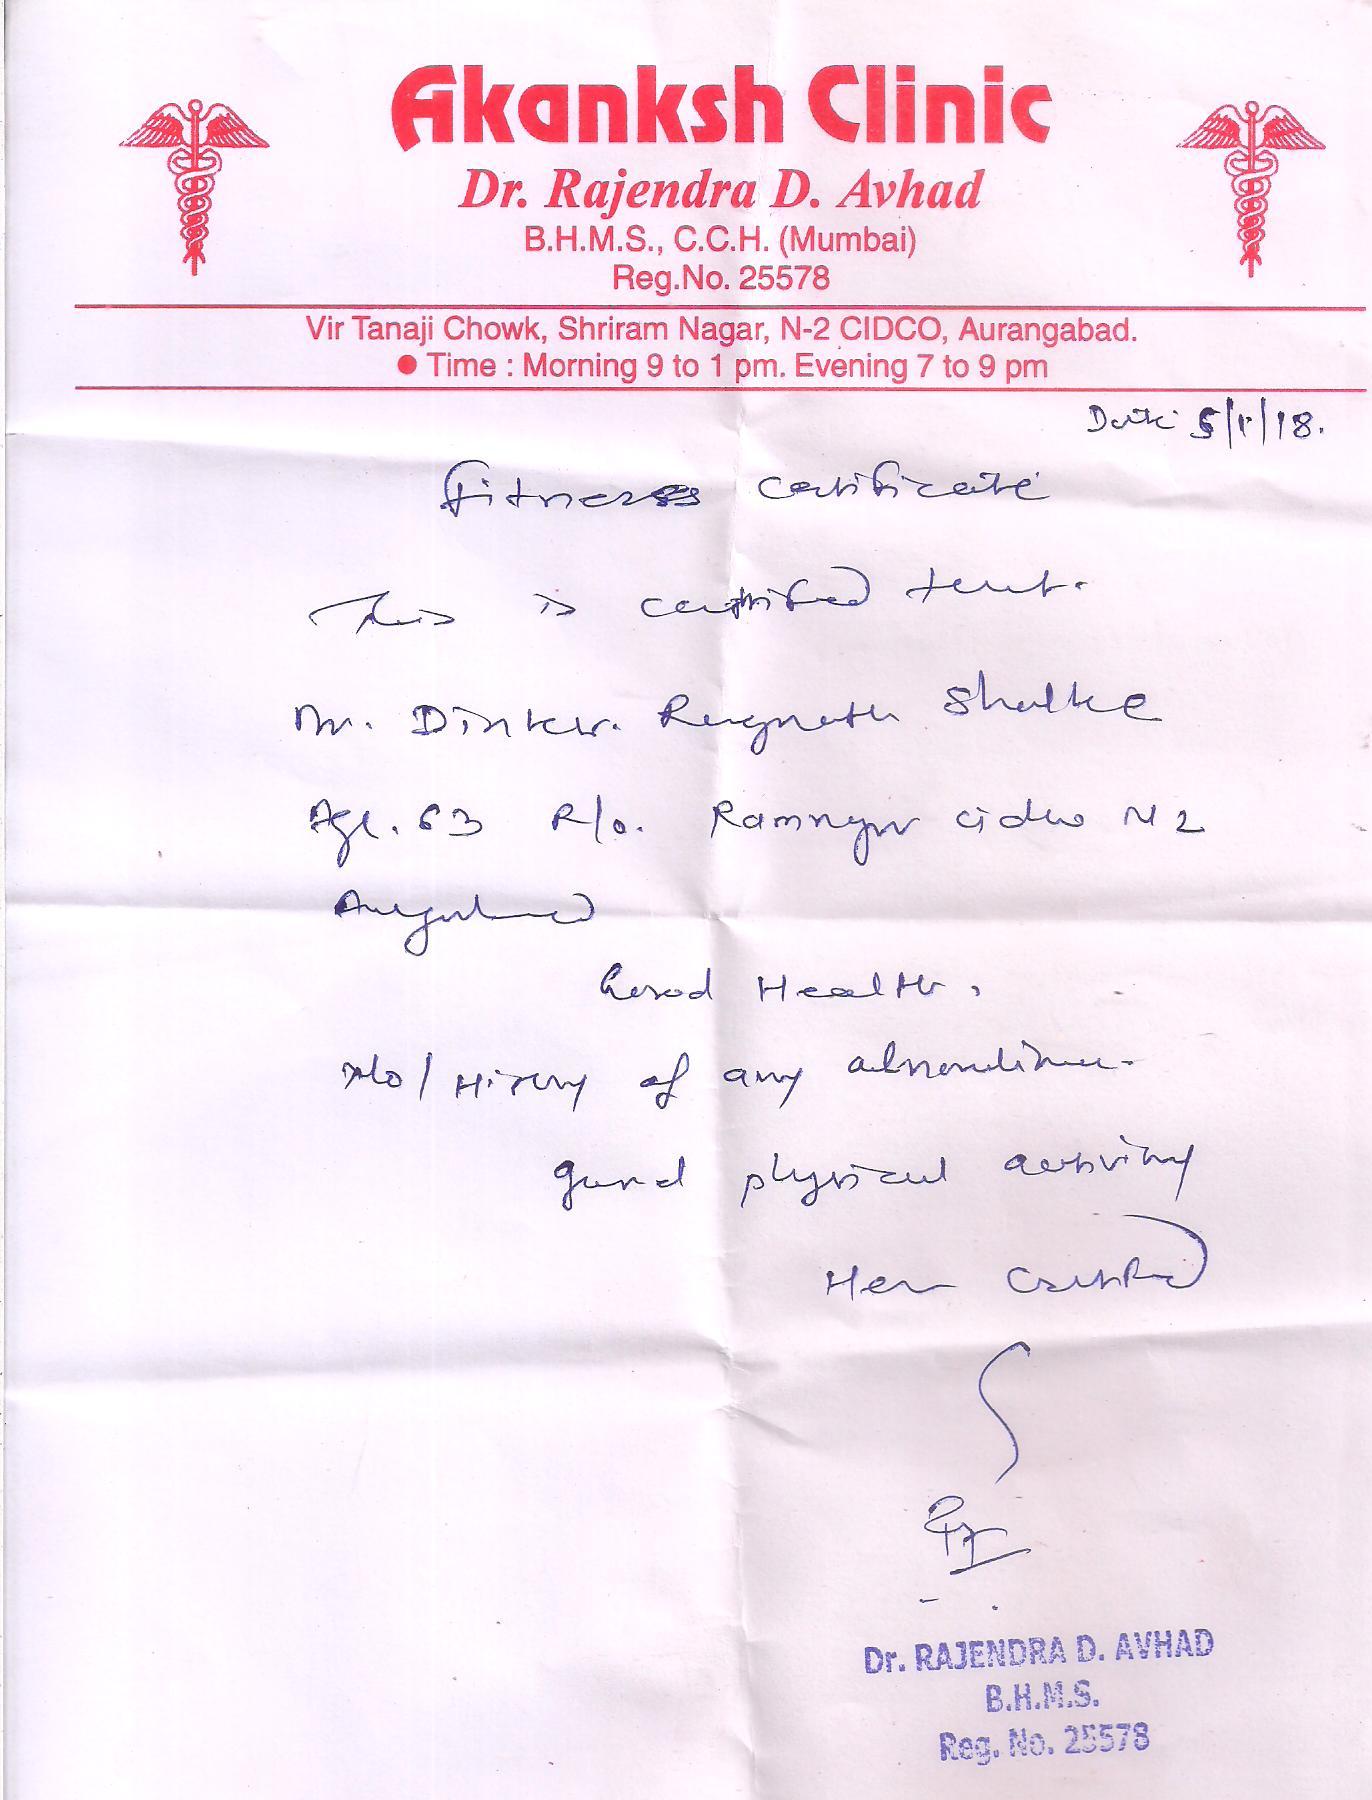 Akanksh Clinic
Dr. Rajendra D. Avhad
B.H.M.S., C.C.H. (Mumbai)
Reg.No. 25578
Vir Tanaji Chowk, Shriram Nagar, N-2 CIDCO, Aurangabad.
● Time : Morning 9 to 1 pm. Evening 7 to 9 pm
Date: 5/1/18.
Fitness certificate
This is certified that.
Mr. Dinkar. Rangnath Shelke
Age. 63 R/o. Ramnagar cidco N2
Aurangabad
Good Health,
No/History of any
good physical activity
Hence Certified
Dr. RAJENDRA D. AVHAD
B.H.M.S.
Reg. No. 25578